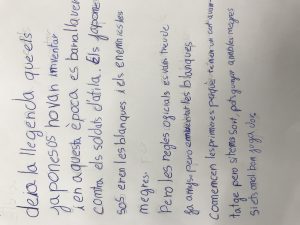 deia la llegenda que els
japonesos ho van inventar
i en aquesta època es barallaven
contra els soldats d'atila. Els japone-
sos eren les blanques i els enemics les
negres.
Pero les regles oficials es van treure
fa anys, pero les blanques
comencen les primeres perquè tenen un cert avan-
tatge pero si tens sort, pots guanyar amb les negres
si ets molt bon jugador.